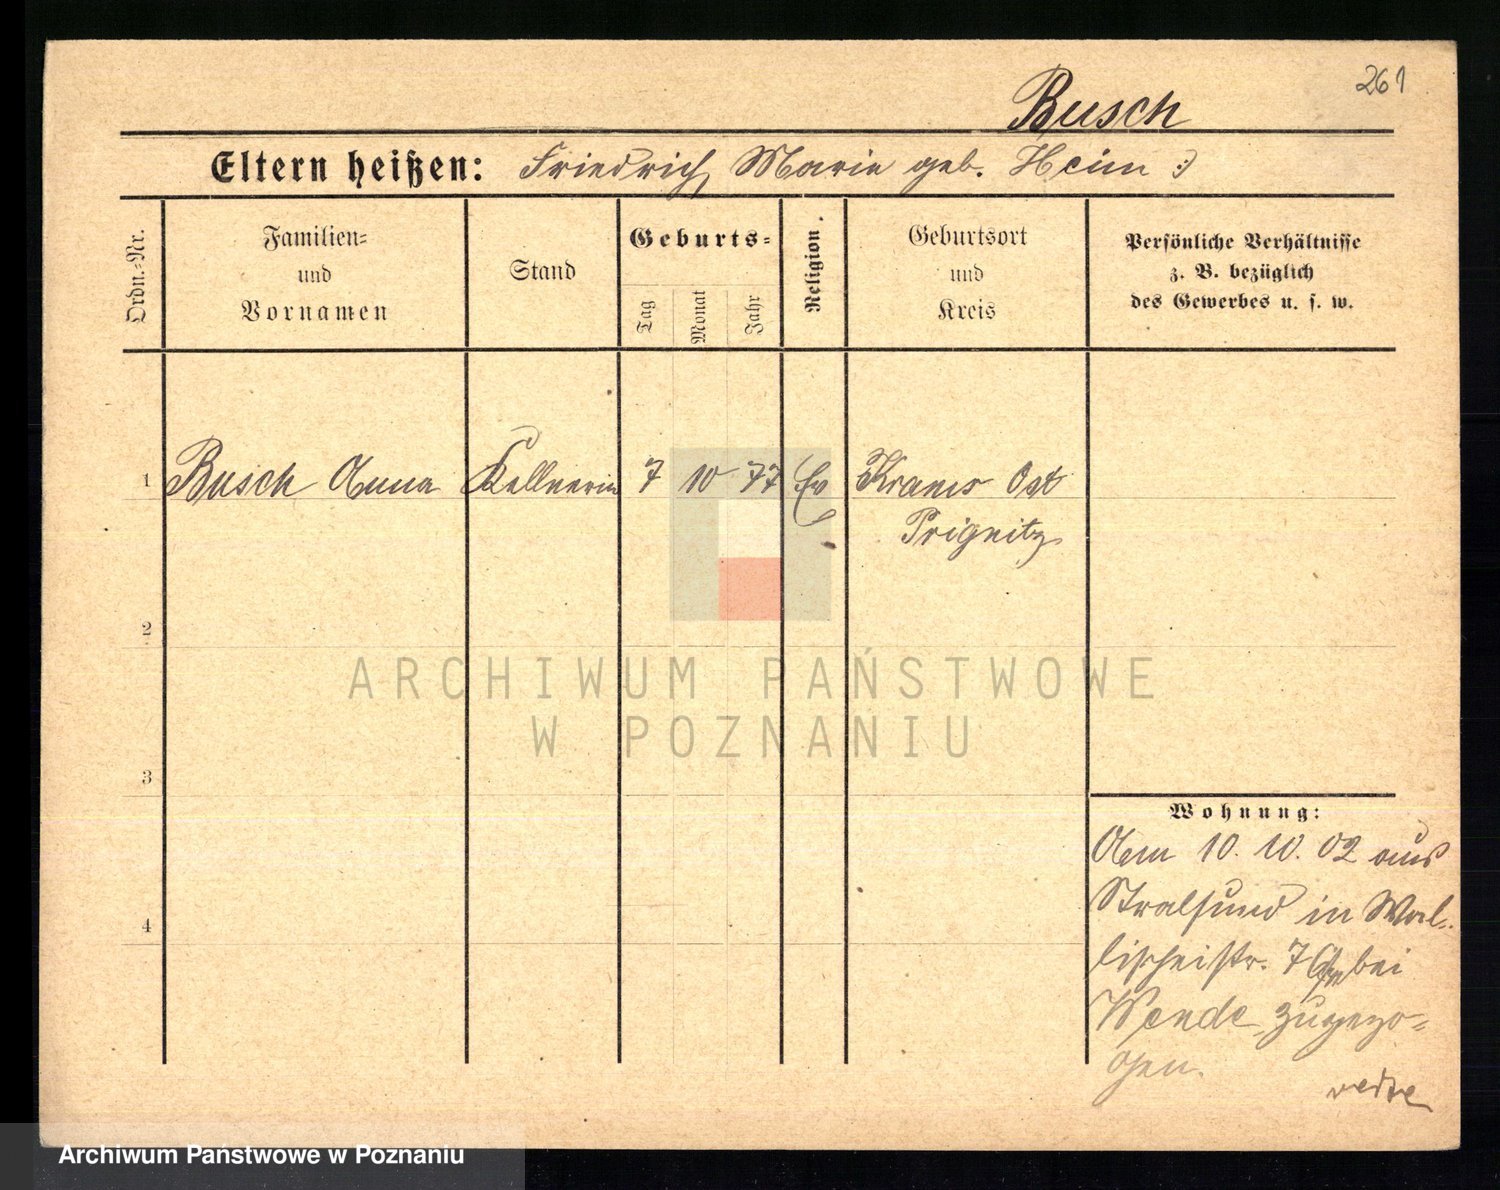 261
Busch
Eltern heißen: Friedrich, Marie geb. Heim :)
Ordn.-Nr.
Familien-
und
Vornamen
Stand
Geburts-
Tag
Monat
Jahr
Religion.
Geburtsort
und
Kreis
Persönliche Verhältnisse
z. B. bezüglich
des Gewerbes u. s. w.
1 Busch Anna Kellnerin 7 10 77 Ev Krams Ost
Prignitz
2
3
4
ARCHIWUM PAŃSTWOWE
W POZNANIU
Wohnung:
Am 10. 10. 02 aus
Stralsund in Wal-
lischeistr. 7 bei
Wende zugezo-
gen.
Archiwum Państwowe w Poznaniu